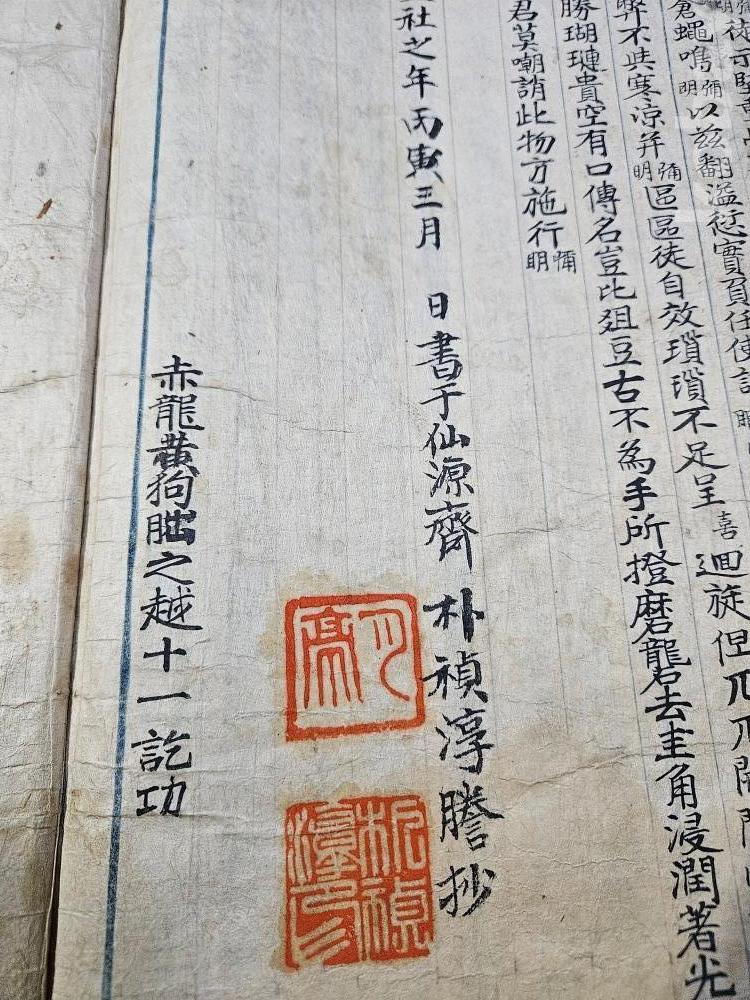 徒示堅
蒼蠅鳴 彌明 以茲翻溢愆實負任使誠
弊不共寒涼并 彌明 區區徒自效瑣瑣不足呈 喜 迴旋但兀兀開
勝瑚璉貴空有口傳名豈比俎豆古不為手所撜磨礱去圭角浸潤著光
君莫嘲誚此物方施行 彌明
社之年丙寅三月 日書于仙源齊 朴禎淳謄抄
朴禎
淳印
赤龍黃狗朏之越十一訖功